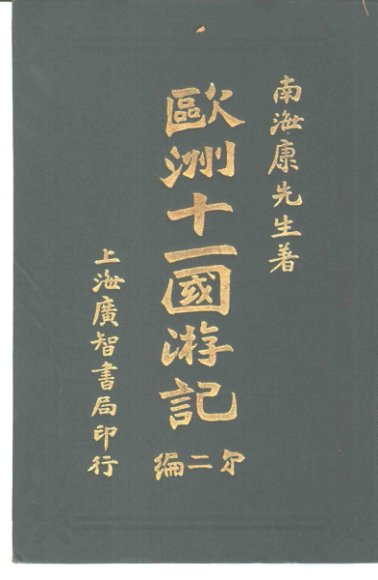 南海康先生著
歐洲十一國游記
弟二編
上海廣智書局印行